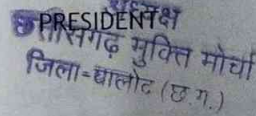 अध्यक्ष
PRESIDENT
छत्तीसगढ़ मुक्ति मोर्चा
जिला-बालोद (छ.ग.)